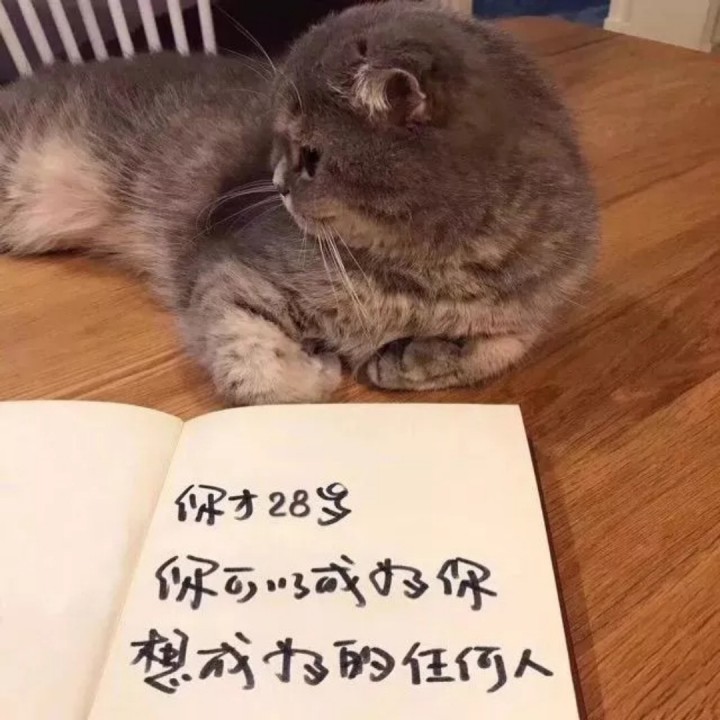 你才28岁
你可以成为你
想成为的任何人